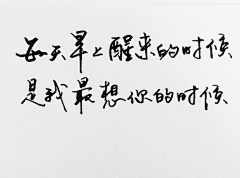 每天早上醒来的时候
是我最想你的时候